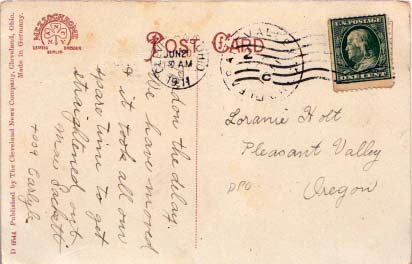 POST CARD
D 6544 Published by The Cleveland News Company, Cleveland, Ohio.
Made in Germany.
METZOCHROME
LEIPZIG
BERLIN
DRESDEN
JUN 20
1911
OHIO
U.S. POSTAGE
ONE CENT
Pardon the delay.
We have moved
& it took all our
spare time to get
straightened out.
Mae Luckett
7009 Carlyle
Loranie Holt
Pleasant Valley
DPO
Oregon